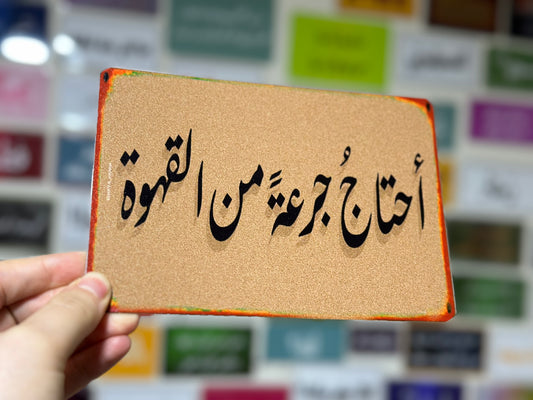 أحتاجُ جرعةً من القهوة